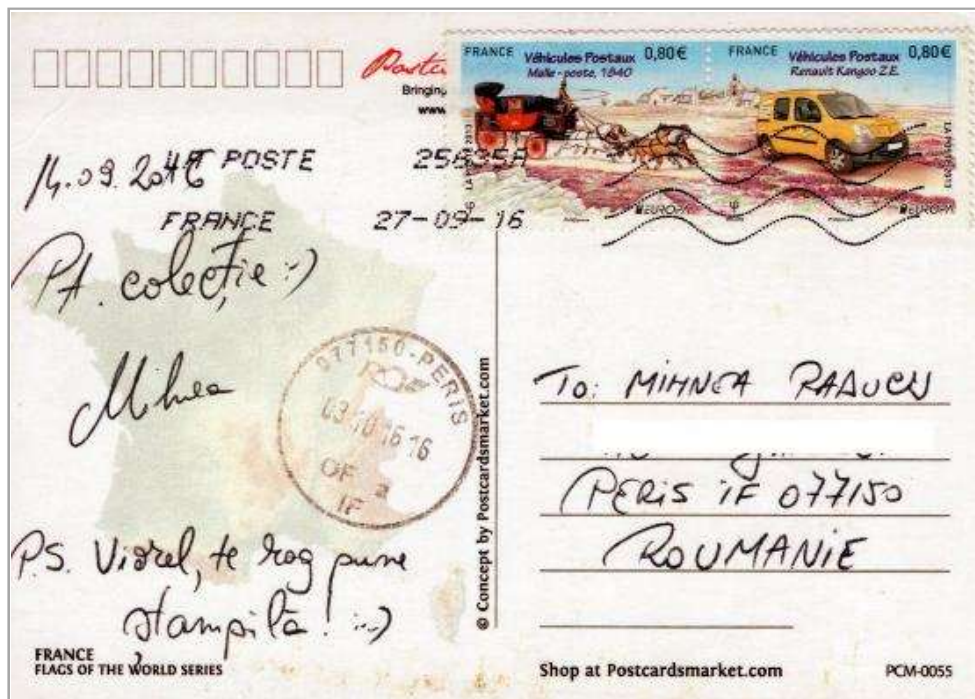 FRANCE Véhicules Postaux 0,80€
Malle-poste, 1840
FRANCE Véhicules Postaux 0,80€
Renault Kangoo Z.E.
Bringing
www.
LA POSTE 25A35A
FRANCE 27-09-16
EUROPA
EUROPA
14.09.2016
Pt. colecție :)
Mihnea
077150-PERIS
03 10 16 16
OF a
IF
P.S. Viorel, te rog pune
ștampilă! :)
© Concept by Postcardsmarket.com
To: MIHNEA RADUCU
PERIS IF 077150
ROUMANIE
FRANCE
FLAGS OF THE WORLD SERIES
Shop at Postcardsmarket.com
PCM-0055